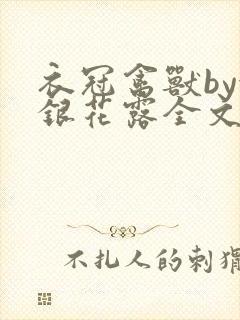 衣冠禽獸by
銀花露全文
不扎人的刺猬